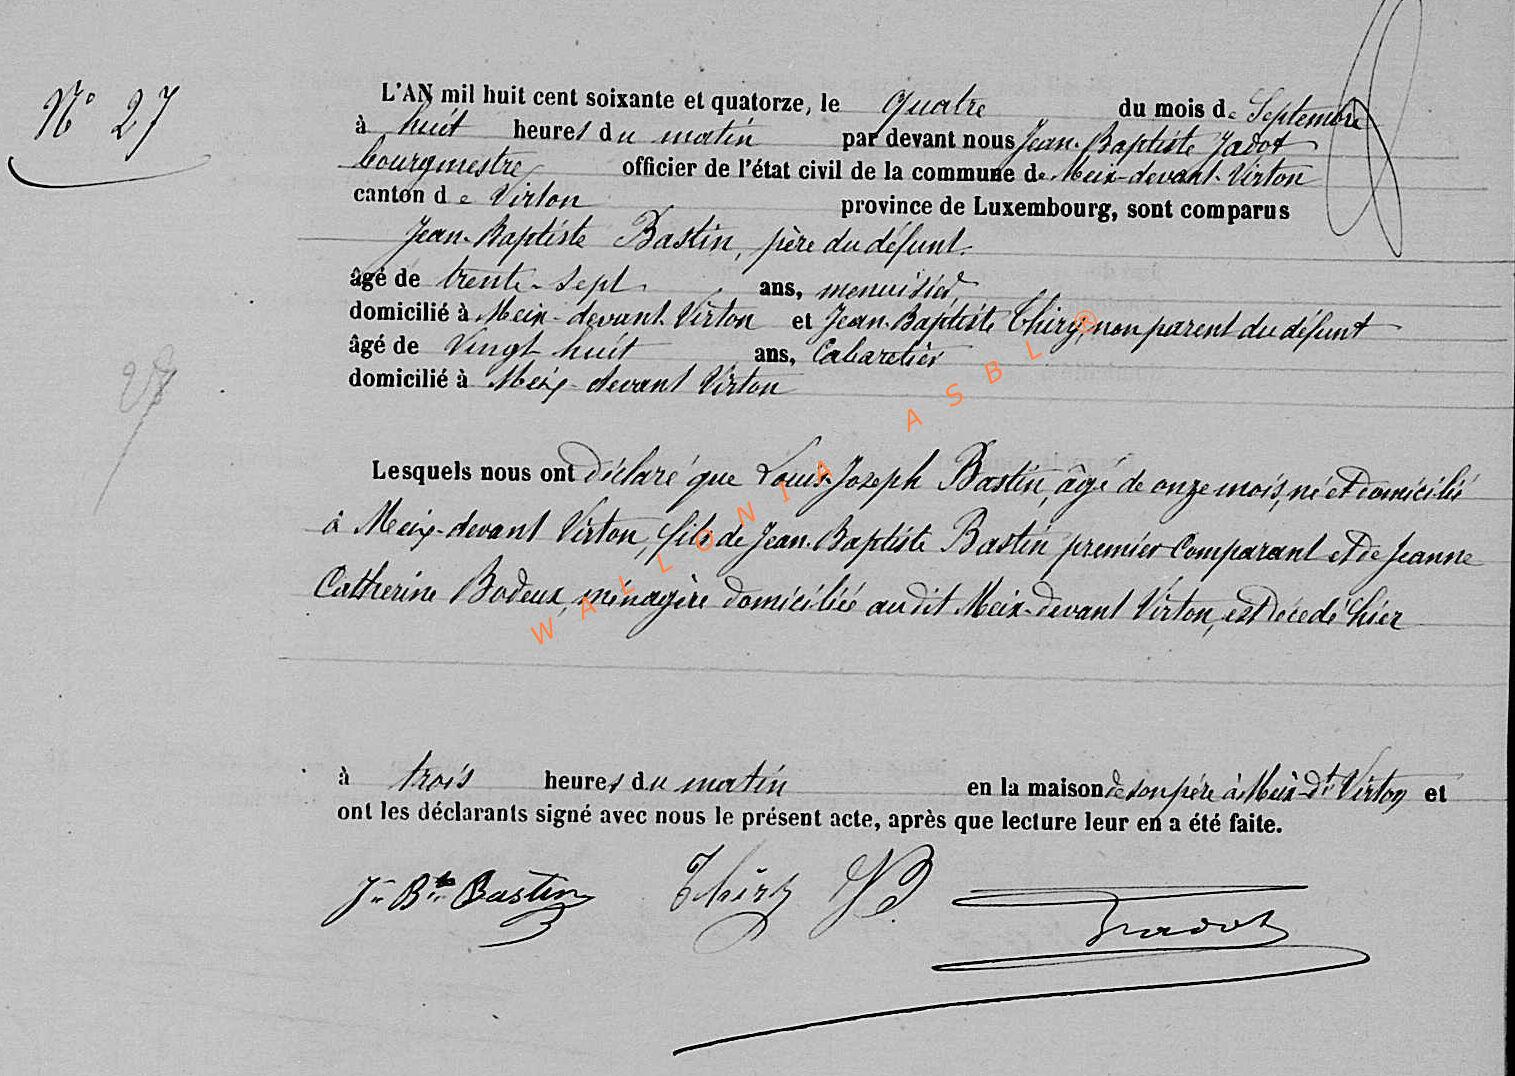 N° 27
L'AN mil huit cent soixante et quatorze, le quatre du mois de Septembre
à huit heures du matin par devant nous Jean-Baptiste Jadot
bourgmestre officier de l'état civil de la commune de Meix-devant-Virton
canton de Virton province de Luxembourg, sont comparus
Jean-Baptiste Bastin, père du défunt.
âgé de trente-sept ans, menuisier,
domicilié à Meix-devant-Virton et Jean-Baptiste Thiry, non parent du défunt
âgé de Vingt huit ans, Cabaretier
domicilié à Meix-devant Virton
27
Lesquels nous ont déclaré que Louis-Joseph Bastin, âgé de onze mois, né et domicilié
à Meix-devant Virton, fils de Jean-Baptiste Bastin premier Comparant et de Jeanne
Catherine Bodeux, ménagère domiciliée audit Meix-devant Virton, est décédé hier
à trois heures du matin en la maison de son père à Meix-Dt Virton et
ont les déclarants signé avec nous le présent acte, après que lecture leur en a été faite.
Jn Bte Bastin Thiry JB. Jadot
WALLONIA ASBL ®